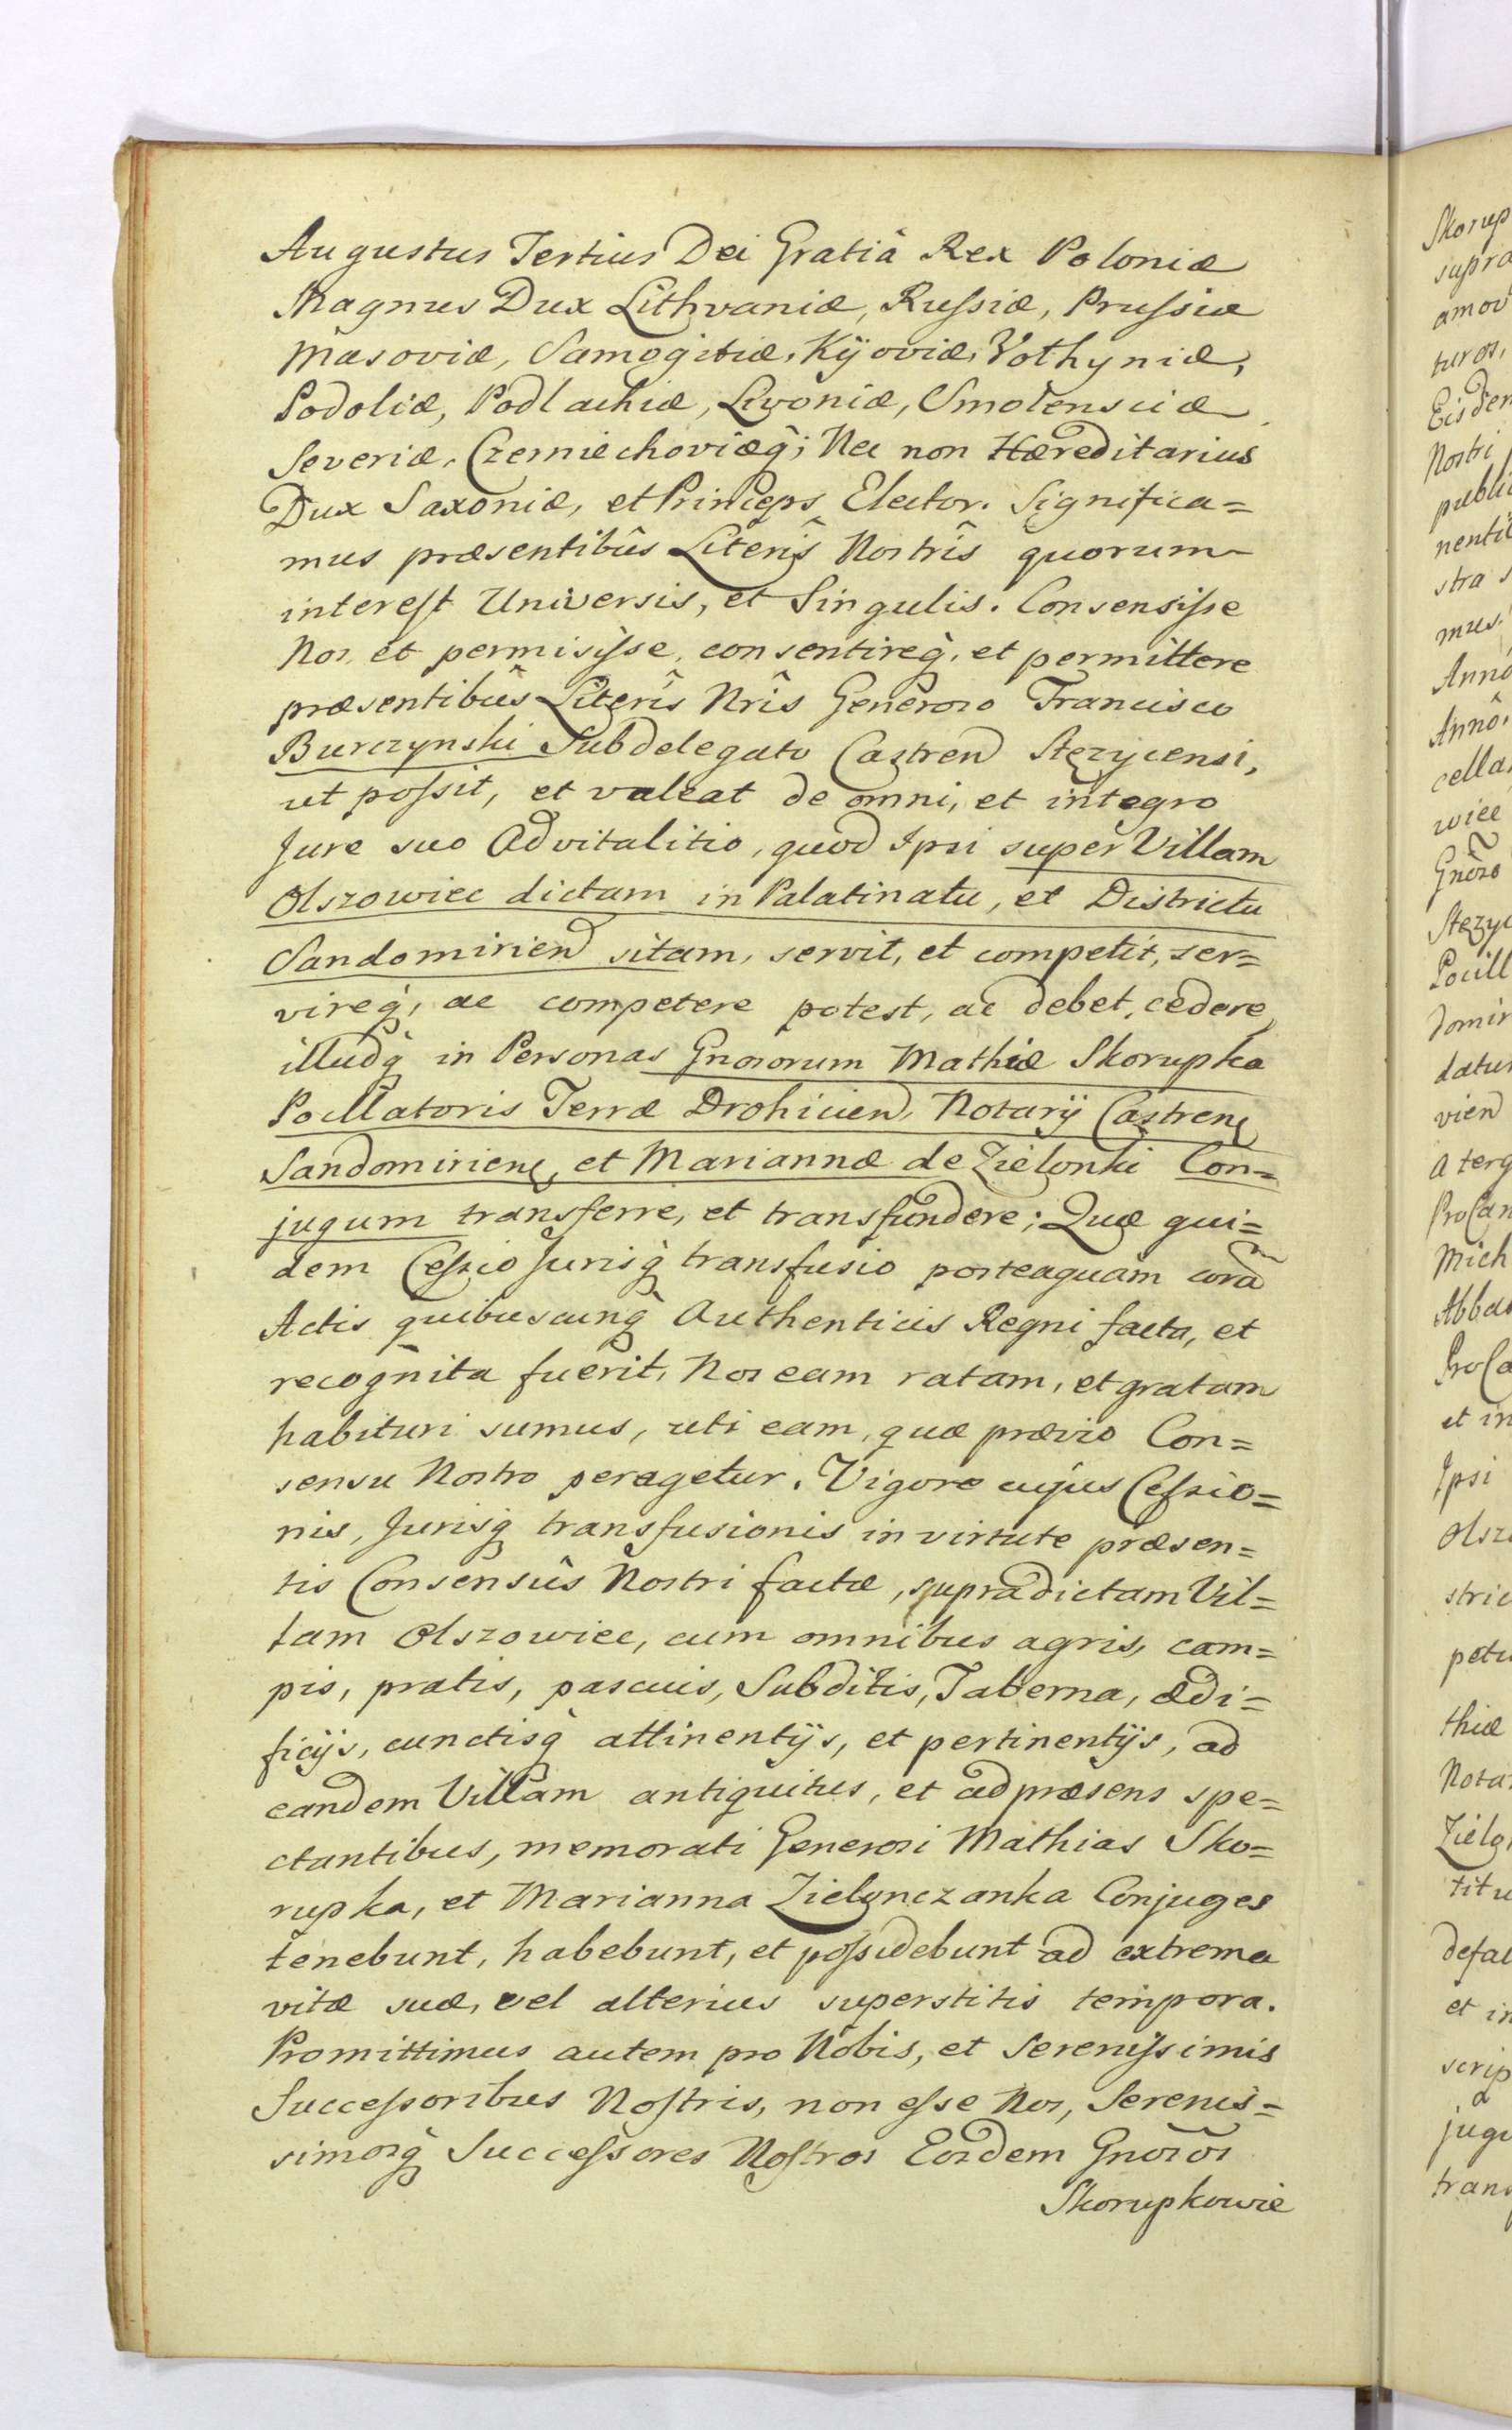 Augustus Tertius Dei Gratiâ Rex Poloniæ
Magnus Dux Lithvaniæ, Russiæ, Prussiæ
Masoviæ, Samogitiæ, Kijoviæ, Volhyniæ,
Podoliæ, Podlachiæ, Livoniæ, Smolensciæ
Severiæ, Czerniechoviæq̀; Nec non Hæreditarius
Dux Saxoniæ, et Princeps Elector. Significa=
mus præsentibûs Literîs Nostrîs quorum
interest Universis, et Singulis. Consensisse
Nos, et permisisse, consentireq̀, et permittere
præsentibûs Literîs Nrîs Generoso Francisco
Burczynski Subdelegato Castren Stezycensi,
ut possit, et valeat de omni, et integro
Jure suo Advitalitio, quod Ipsi super Villam
Olszowiec dictam in Palatinatu, et Districtu
Sandomirien sitam, servit, et competit, ser=
vireq̀, ac competere potest, ac debet, cedere,
illudq̀ in Personas Gnosorum Mathiæ Skorupka
Pocillatoris Terræ Drohicien, Notarij Castren
Sandomirien, et Mariannæ de Zielonki Con=
jugum transferre, et transfundere; Quæ qui=
dem Cessio Jurisq̀ transfusio posteaquam corã
Actis quibuscunq̀ Authenticis Regni facta, et
recognita fuerit, Nos eam ratam, et gratam
habituri sumus, uti eam, quæ prævio Con=
sensu Nostro peragetur. Vigore cujus Cessio=
nis, Jurisq̀ transfusionis in virtute præsen=
tis Consensûs Nostri factæ, supradictam Vil=
lam Olszowiec, cum omnibus agris, cam=
pis, pratis, pascuis, Subditis, Taberna, ædi=
ficijs, cunctisq̀ attinentijs, et pertinentijs, ad
eandem Villam antiquitus, et ad præsens spe=
ctantibus, memorati Generosi Mathias Sko=
rupka, et Marianna Zielonczanka Conjuges
tenebunt, habebunt, et possidebunt ad extrema
vitæ suæ, vel alterius superstitis tempora.
Promittimus autem pro Nobis, et Serenissimis
Successoribus Nostris, non esse Nos, Serenis=
simosq̀ Successores Nostros Eosdem Gnosos
Skorupkowie